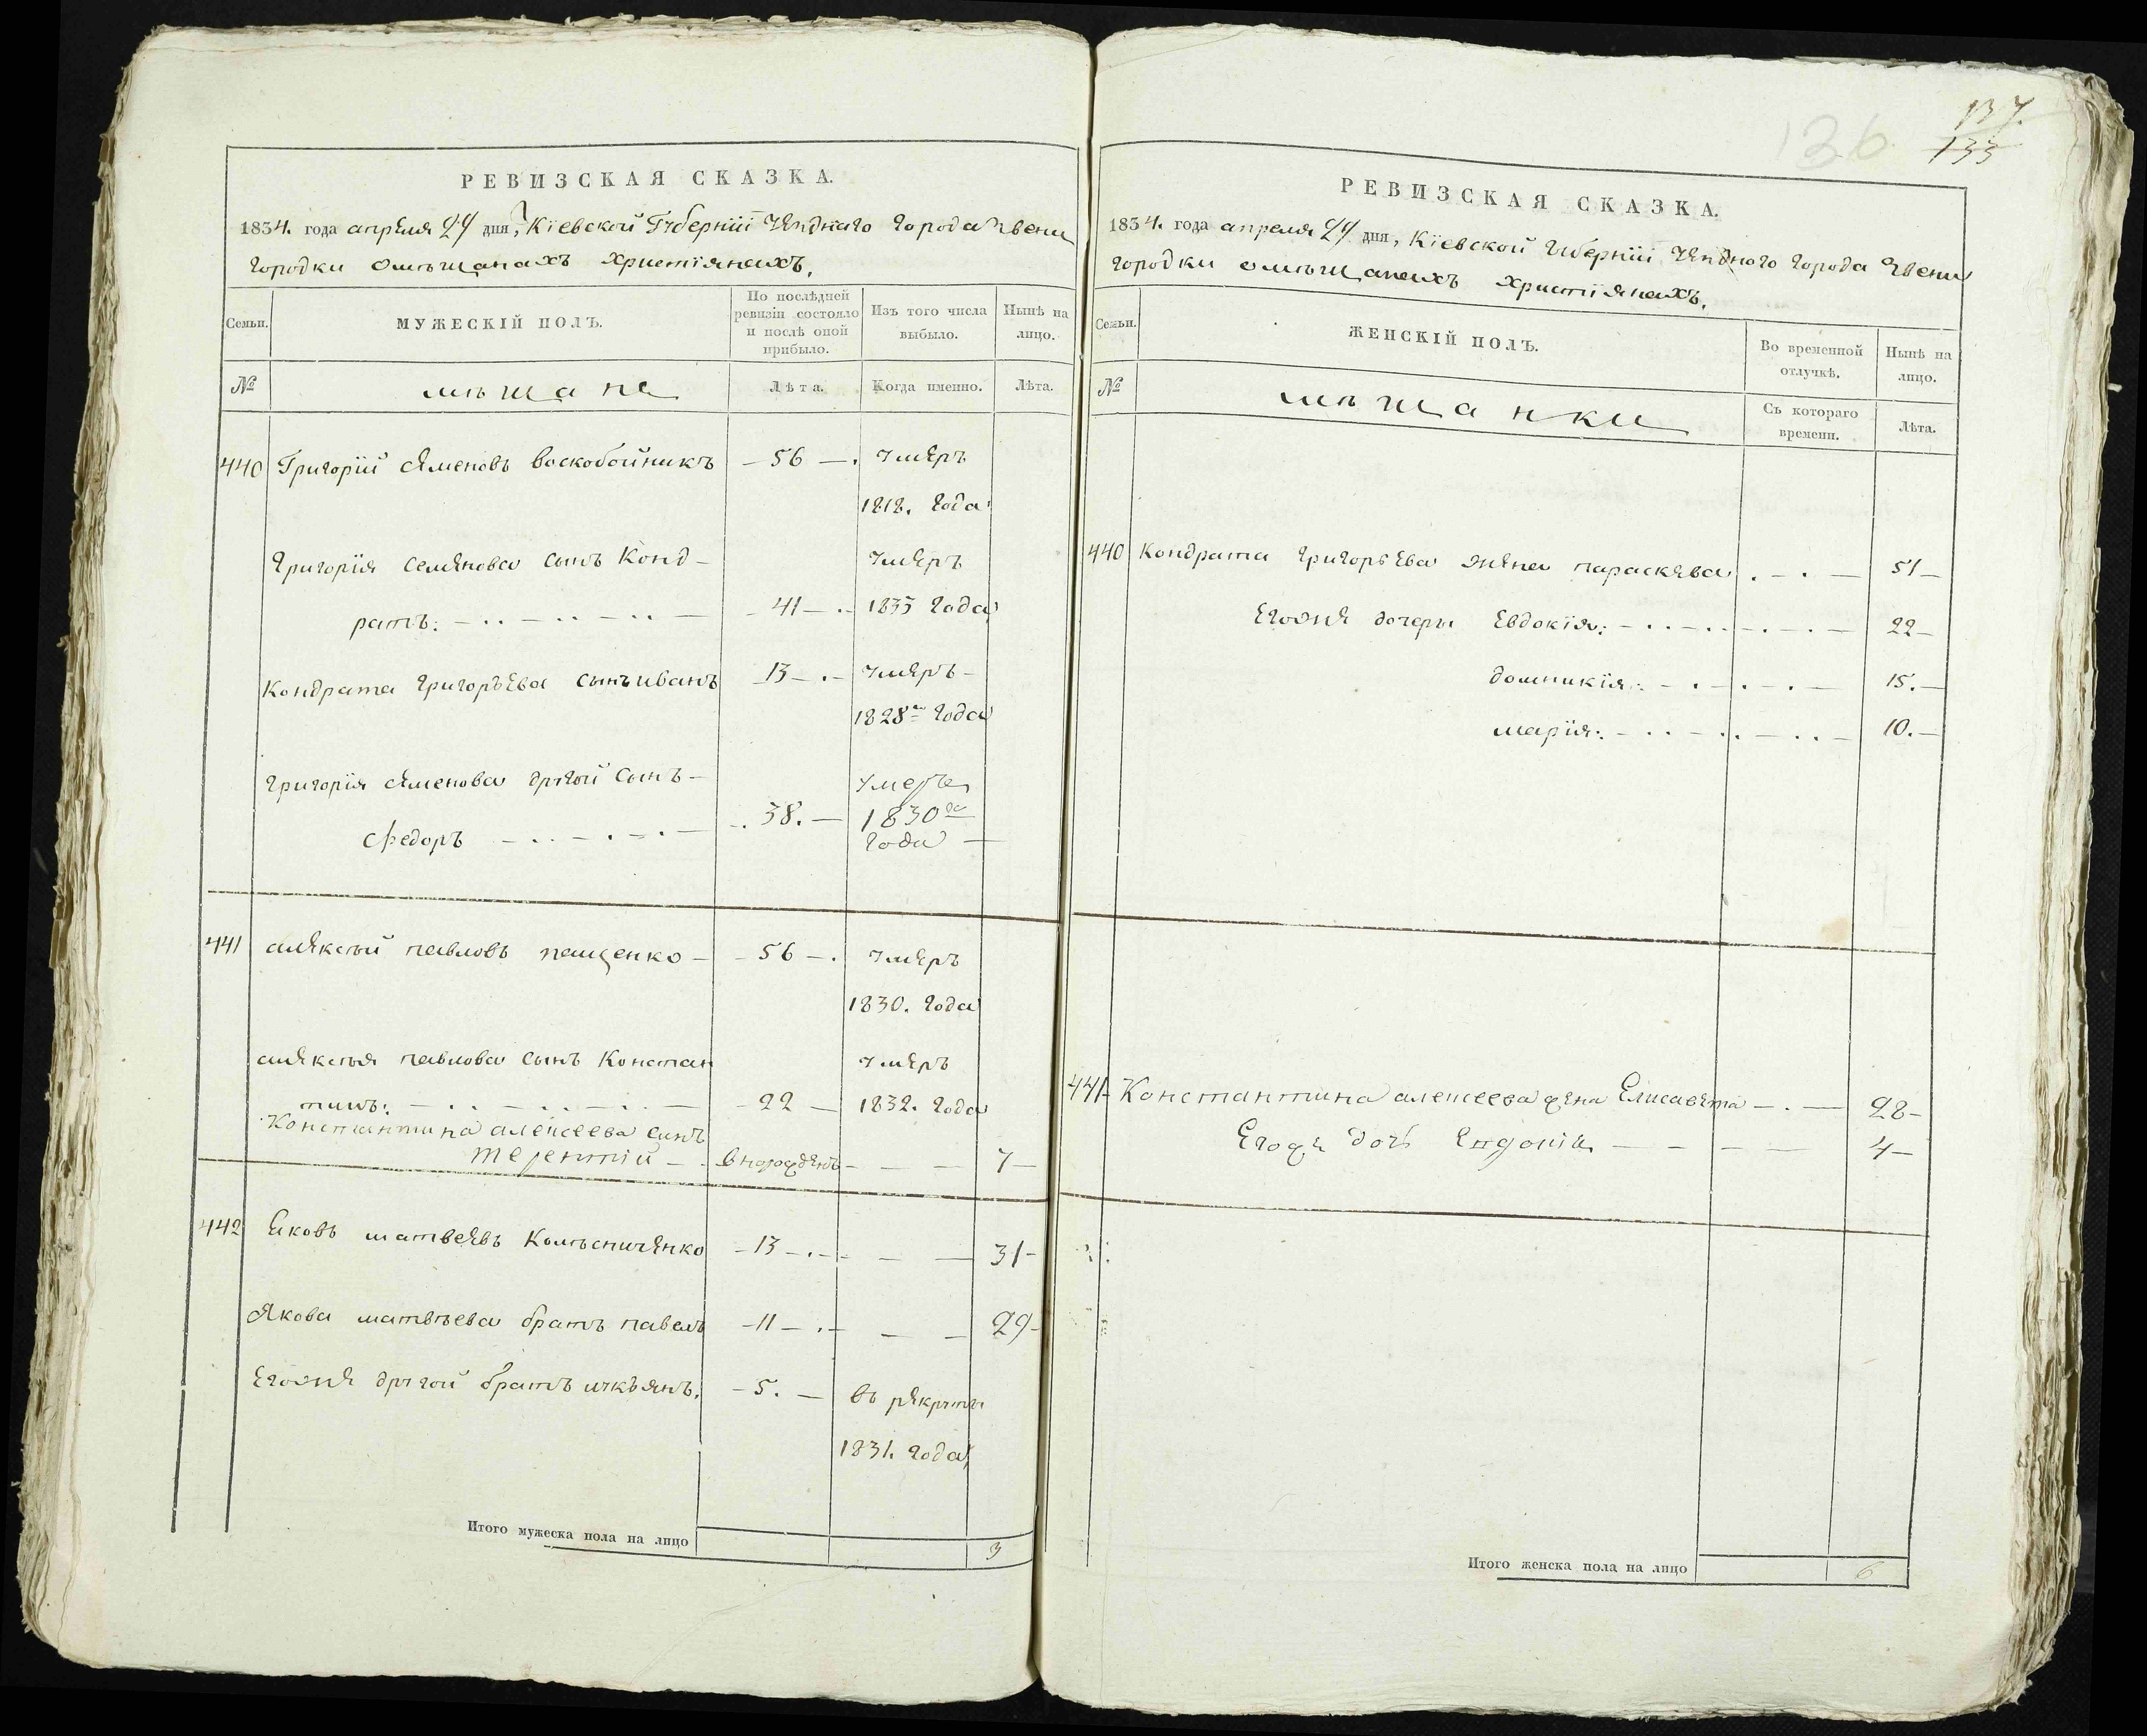 РЕВИЗСКАЯ СКАЗКА.
1834. года апреля 24 дня, Кіевской Губерніи уезднаго города Звени
городки омѣщанахъ христіянахъ.
Семьи. МУЖЕСКІЙ ПОЛЪ. По послѣдней ревизіи состояло и послѣ оной прибыло. Изъ того числа выбыло. Нынѣ на лицо.
№ мѣщане Лѣта. Когда именно. Лѣта.
440 Григорій Семеновъ Воскобойникъ — 56 — умеръ
1818. года
Григорія Семенова сынъ Конд- умеръ
ратъ: — 41 — 1833 года
Кондрата Григорьева сынъ иванъ 13 — умеръ —
1828го года
Григорія Семенова другой сынъ — умеръ
Федоръ — 38. — 1830го
года —
441 алексѣй павловъ пащенко — 56 — умеръ
1830. года
алексѣя павлова сынъ Констан умеръ
тинъ: — 22 — 1832. года
Константина алексеева сынъ
терентій — вновро­жденъ — 7 —
442 Яковъ матвеевъ Колѣсниченко — 13 — 31 —
Якова матвѣева братъ павелъ — 11 — 29 —
Егоже другой братъ лукьянъ. — 5. — въ рекруты
1831. года
Итого мужеска пола на лицо 3
137.
136 133
РЕВИЗСКАЯ СКАЗКА.
1834. года апреля 24 дня, Кіевской Губерніи уезднаго города Звени
городки омѣщанахъ христіянахъ.
Семьи. ЖЕНСКІЙ ПОЛЪ. Во временной отлучкѣ. Нынѣ на лицо.
№ мѣщанки Съ котораго времени. Лѣта.
440 Кондрата Григорьева жена параскева — 51 —
Егоже дочери Евдокія: — 22 —
домникія: — 15. —
марія: — 10. —
441 Константина алексеева жена Елисавета — 28 —
Егоже дочь Евдокія — 4 —
Итого женска пола на лицо 6